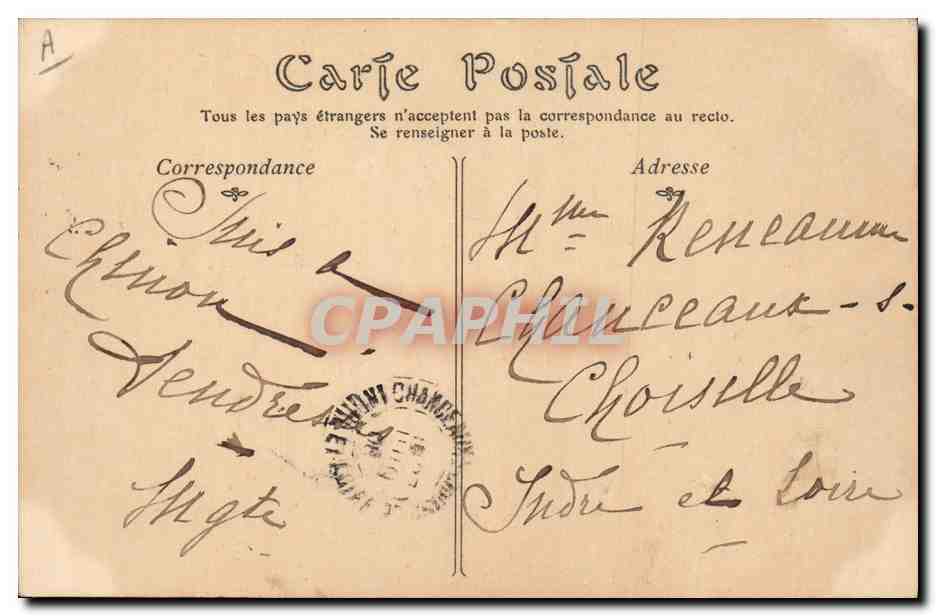 A
Carte Postale
Tous les pays étrangers n'acceptent pas la correspondance au recto.
Se renseigner à la poste.
Correspondance
Suis a
Chinon
Vendredi
Mgte
Adresse
Mme Reneaume
Chanceaux-s-
Choiselle
Indre et Loire
CHANCEAUX
CPAPHIL